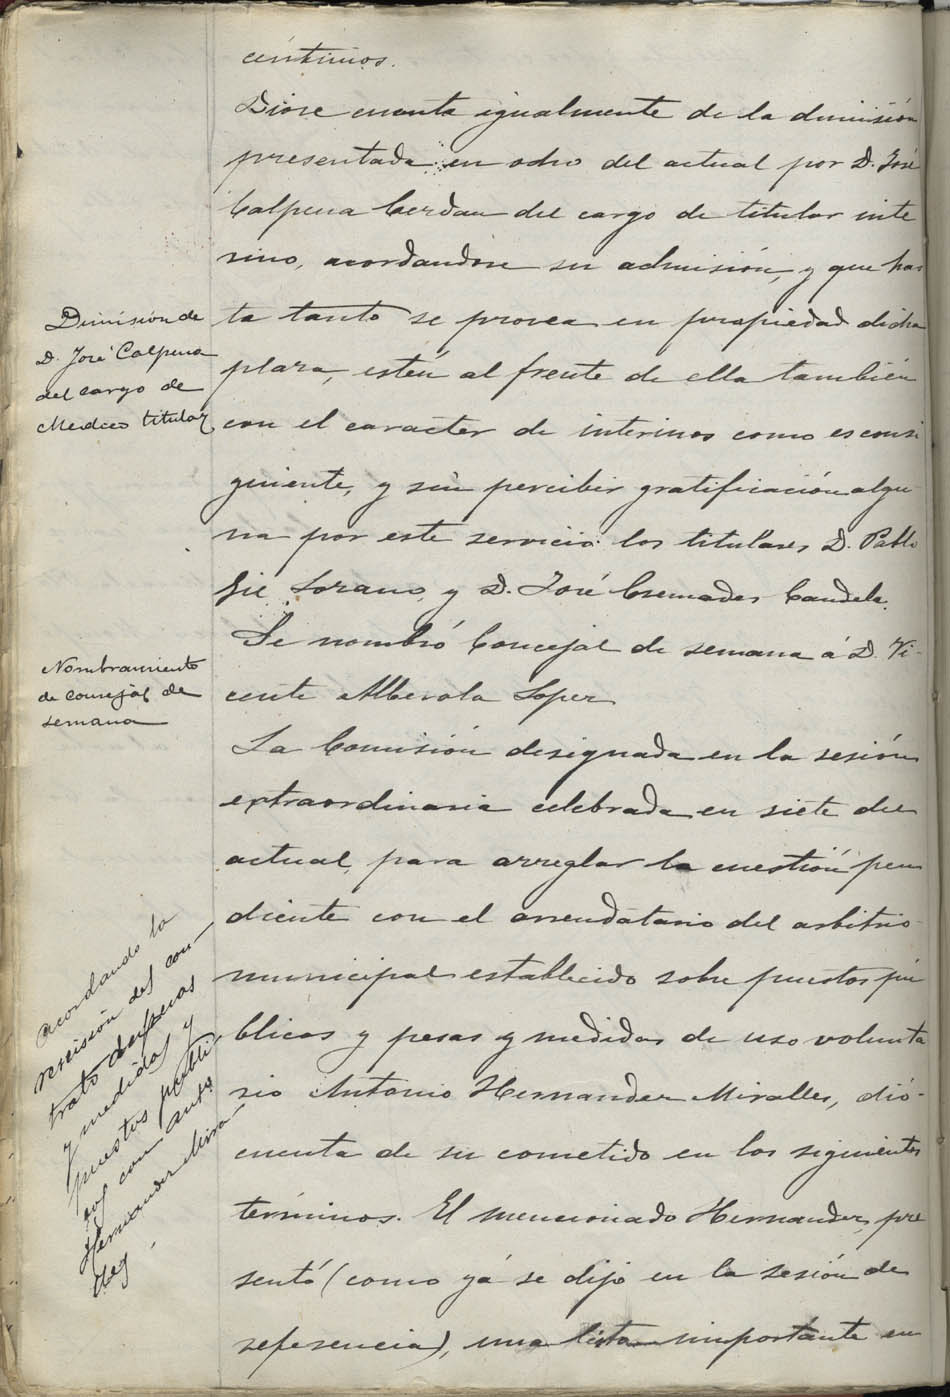 céntimos.
Diose cuenta igualmente de la dimisión
presentada en ocho del actual por D. José
Calpena Cerdan del cargo de titular inte
rino, acordandose su admisión, y que has
ta tanto se provea en propiedad dicha
plaza, estén al frente de ella también
con el caracter de interinos como es consi
guiente, y sin percibir gratificación algu
na por este servicio los titulares D. Pablo
Gil Lozano, y D. José Cremades Candela.
Se nombró Concejal de semana á D. Vi-
cente Alberola Soper
La Comisión designada en la sesión
extraordinaria celebrada en siete del
actual, para arreglar la cuestión pen
diente con el arrendatario del arbitrio
municipal establecido sobre puestos pú
blicos y pesas y medidas de uso volunta
rio Antonio Hernandez Miralles, dió
cuenta de su cometido en los siguientes
términos. El mencionado Hernandez, pre
sentó (como yá se dijo en la sesión de
referencia), una lista importante en
Dimisión de
D. José Calpena
del cargo de
Medico titular
Nombramiento
de consejal de
semana
acordando la
rescisión del con-
trato de pesas
y medidas y
puestos públi
cos con Antº
Hernandez Mira
lles